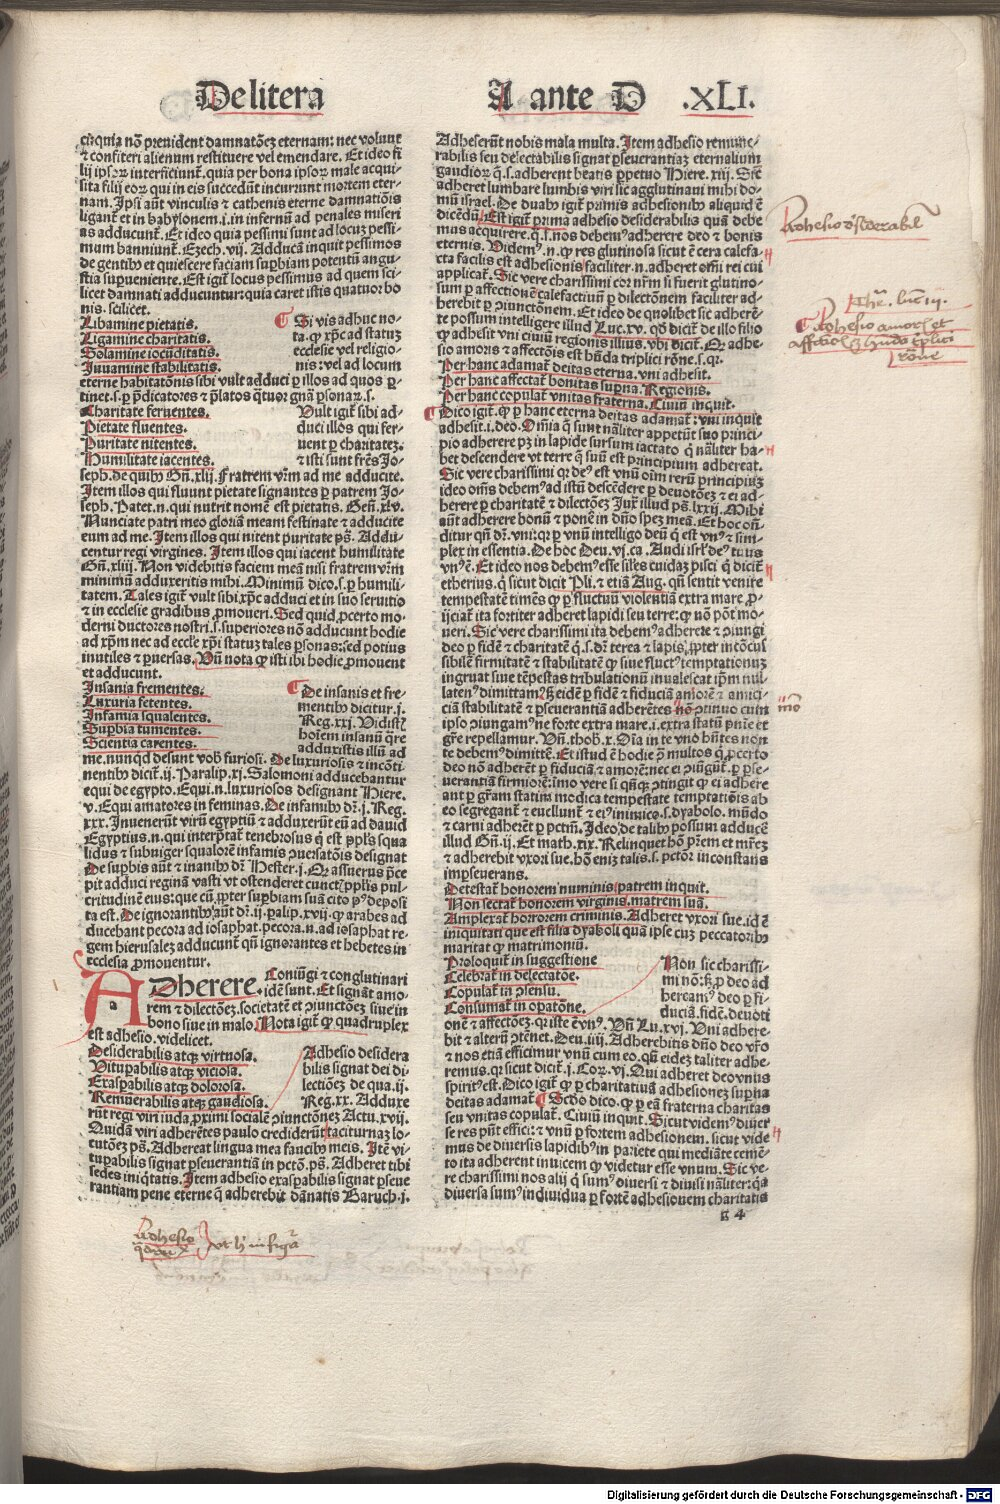 De litera A ante D .XLI.
cū quia nō prevident damnatōez eternam: nec volunt
⁊ confiteri alienum restituere vel emendare. Et ideo fi
lij ipsoꝝ interficiunt̄. quia per bona ipsoꝝ male acqui
sita filij eoꝝ qui in eis succedūt incurunt mortem eter-
nam. Ipsi aūt vinculis ⁊ cathenis eterne damnatiōis
ligant̄ et in babylonem .i. in infernū ad penales miseri
as adducunt̄. Et ideo quia pessimi sunt ad locuz pessi-
mum banniunt̄. Ezech. vij. Adducā inquit pessimos
de gentibꝰ et quiescere faciam suꝑbiam potentū angu-
stia suꝑveniente. Est igit̄ locus pessimus ad quem sci-
licet damnati adducuntur: quia caret istis quatuor bo
nis. scilicet.
Libamine pietatis.
Ligamine charitatis.
Solamine iocūditatis.
Iuvamine stabilitatis.
¶ Si vis adhuc no-
ta. ꝙ xp̄c ad statuz
ecclesie vel religio-
nis: vel ad locum
eterne habitatōnis sibi vult adduci ꝑ illos ad quos ꝑ-
tinet. s. ꝑ p̄dicatores ⁊ p̄latos q̄tuor gn̄a ꝑsonaꝝ. s.
Charitate ferventes.
Pietate fluentes.
Puritate nitentes.
Humilitate iacentes.
Vult igit̄ sibi ad-
duci illos qui fer-
vent ꝑ charitatez.
⁊ isti sunt fr̄es Jo-
seph. de quibꝰ Gn̄. xlij. Fratrem vr̄m ad me adducite.
Item illos qui fluunt pietate signantes ꝑ patrem Jo-
seph. Patet .n. qui nutrit nomē est pietatis. Gen̄. xlv.
Nunciate patri meo gloriā meam festinate ⁊ adducite
eum ad me. Item illos qui nitent puritate ps̄. Addu-
centur regi virgines. Item illos qui iacent humilitate
Gn̄. xliij. Non videbitis faciem meā nisi fratrem vr̄m
minimū adduxeritis mihi. Minimū dico. s. ꝑ humili-
tatem. Tales igit̄ vult sibi xp̄c adduci et in suo servitio
⁊ in ecclesie gradibus ꝓmoveri. Sed quid ꝓcerto mo
derni ductores nostri. s. superiores nō adducunt hodie
ad xp̄m nec ad eccl'e xp̄i statuz tales ꝑsonas: sed potius
inutiles ⁊ ꝑversas. Un̄ nota ꝙ isti ibi hodie ꝓmovent
et adducunt.
Insania frementes.
Luxuria fetentes.
Infamia squalentes.
Suꝑbia tumentes.
Scientia carentes.
¶ De insanis et fre-
mentibꝰ dicitur .j.
Reg. xxj. Vidistꝭ
hoīem insanū q̄re
adduxistis illū ad
me. nunqd desunt vob̄ furiosi. De luxuriosis ⁊ incōti
nentibꝰ dicit̄ .ij. Paralip. xj. Salomoni adducebantur
equi de egypto. Equi .n. luxuriosos designant Hiere.
v. Equi amatores in feminas. De infamibꝰ dr̄ .j. Reg.
xxx. Invenerūt virū egyptiū ⁊ adduxerūt eū ad david
Egyptius .n. qui interp̄tat̄ tenebrosus q̄ est ppl̄s squa
lidus ⁊ subniger squalorē infamis ↄversatōis designat
De suꝑbis aūt ⁊ inanibꝰ dr̄ Hester. j. Qr assuerus p̄ce
pit adduci reginā vasti vt ostenderet cunctꝭ ppl̄is pul-
critudinē eius: que cū ꝓpter suꝑbiam suā cito ꝑ deposi
ta est. De ignorantibꝰ aūt dr̄. ij. palip. xvij. ꝙ arabes ad
ducebant pecora ad iosaphat. pecora .n. ad iosaphat re-
gem hierusalez adducunt qn̄ ignorantes et hebetes in
ecclesia ꝓmoventur.
ADherere. Coniūgi ⁊ conglutinari
idē sunt. Et signāt amo-
rem ⁊ dilectōez. societatē et ↄiunctōez sive in
bono sive in malo. Nota igit̄ ꝙ quadruplex
est adhesio. videlicet.
Desiderabilis atqꝫ virtuosa.
Vituꝑabilis atqꝫ viciosa.
Exasꝑabilis atqꝫ dolorosa.
Remūerabilis atqꝫ gaudiosa.
Adhesio desidera
bilis signat dei di-
lectiōez de qua .ij.
Reg. xx. Adduxe
rūt regi viri iuda ꝓximi socialē ↄiunctōez Actu. xvij.
Quidā viri adherētes paulo crediderūt taciturnaz lo-
cutōez ps̄. Adhereat lingua mea faucibꝰ meis. Itē vi-
tuꝑabilis signat ꝑseverantiā in pctō. ps̄. Adheret tibi
sedes iniq̄tatis. Item adhesio exasꝑabilis signat ꝑseve
rantiam pene eterne q̄ adherebit dānatis Baruch .j.
Adheserūt nobis mala multa. Item adhesio remune-
rabilis seu delectabilis signat ꝑseverantiaz eternalium
gaudioꝝ q̄. s. adherent beatis ꝑpetuo Hiere. xiij. Sic̄
adheret lumbare lumbis viri sic agglutinavi mihi do-
mū israel. De duabꝰ igit̄ primis adhesionibꝰ aliquid ē
dicēdū. Est igit̄ prima adhesio desiderabilis quā debe
mus acquirere. q̄. s. nos debemꝰ adherere deo ⁊ bonis
eternis. Videmꝰ .n. ꝙ res glutinosa sicut ē cera calefa-
cta facilis est adhesionis faciliter .n. adheret om̄i rei cui
applicat̄. Sic vere charissimi cor nr̄m si fuerit glutino-
sum ꝑ affectionē calefactivū ꝑ dilectōnem faciliter ad-
herebit ꝑ ↄiunctōnem. Et ideo de quolibet sic adherē-
te possum intelligere illud Luc. xv. qd̄ dicit̄ de illo filio
ꝙ adhesit vni civiū regionis illius. vbi dicit̄. Qr adhe-
sio amoris ⁊ affectōis est hn̄da triplici rōne. s. qr.
Per hanc adamat̄ deitas eterna. vni adhesit.
Per hanc affectat̄ bonitas supna. Regionis.
Per hanc copulat̄ vnitas fraterna. Civiū inquit.
¶ Dico igit̄ ꝙ ꝑ hanc eterna deitas adamat̄: vni inquit
adhesit .i. deo. Om̄ia q̄ sunt nāliter appetūt suo princi-
pio adherere pz in lapide sursum iactato q̄ nāliter ha-
bet descendere vt terre q̄ suū est principium adhereat.
Sic vere charissimi qr deꝰ est vnū oīm rerū principiuz
ideo om̄s debemꝰ ad istū descēdere ꝑ devotōez ⁊ ei ad-
herere ꝑ charitatē ⁊ dilectōez Jux̄ illud ps̄. lxxij. Mihi
aūt adherere bonū ⁊ ponē in dn̄o spez meā. Et hoc on̄-
ditur qn̄ dr̄. vni: qr ꝑ vnū intelligo deū q̄ est vnꝰ ⁊ sim-
plex in essentia. De hoc Deu. vj. ca. Audi isrl' deꝰ tuus
vnꝰ ē. Et ideo nos debemꝰ esse siles cuidaz pisci q̄ dicit̄
etherius. q̄ sicut dicit Pli. ⁊ etiā Aug. qn̄ sentit venire
tempestatē timēs ꝙ ꝑ fluctuū violentiā extra mare ꝓ-
ijciat̄ ita fortiter adheret lapidi seu terre: ꝙ nō pōt mo-
veri. Sic vere charissimi ita debemꝰ adherere ⁊ ↄiungi
deo ꝑ fidē ⁊ charitatē q̄. s. dr̄ terea ⁊ lapis. ꝓpter intōcus
sibilē firmitatē ⁊ stabilitatē ꝙ sive fluctꝰ temptationuz
ingruat sive tēpestas tribulationū invalescat ip̄m nul-
latenꝰ dimittam. Eidē ꝑ fidē ⁊ fiduciā amorē ⁊ amici-
ciā stabilitatē ⁊ ꝑseverantiā adherētes nō ↄtinuo cum
ipso ↄiungamꝰ ne forte extra mare .i. extra statū pn̄ie et
gr̄e repellamur. Un̄. thob. x. Oīa in te vno hn̄tes non
te debemꝰ dimittē. Et istud ē hodie ꝯ multos q̄ ꝓcerto
deo nō adherent ꝑ fiduciā ⁊ amorē: nec ei ↄiūgūt̄ ꝑ ꝑse-
verantiā firmiorē: imo vere si qn̄qꝫ ↄtingit ꝙ ei adhere
ant ꝑ gr̄am statim modica tempestate temptatiōis ab
eo segregant̄ ⁊ evellunt̄ ⁊ eiꝰ inimico. s. dyabolo. mūdo
⁊ carni adherēt ꝑ pctm̄. Ideo de talibꝰ possum adducē
illud Gn̄. ij. Et math. xix. Relinquet hō pr̄em et mr̄ez
⁊ adherebit vxori sue. hō eniz talis. s. pctōr inconstans
imꝑseverans.
Detestat̄ honorem numinis. patrem inquit.
Non sectat̄ honorem virginis. matrem suā.
Amplexat̄ horrorem criminis. Adheret vxori sue. id ē
iniquitati que est filia dyaboli quā ipse cuz peccatoribꝰ
maritat ꝙ matrimoniū.
Proloquit̄ in suggestione
Celebrat̄ in delectatōe.
Copulat̄ in ↄsensu.
Consumat̄ in oꝑatōne.
Non sic charissi-
mi nō: s; ꝓ deo ad
hereamꝰ deo ꝑ fi-
duciā. fidē. devoti
onē ⁊ affectōez. qr iste ē vnꝰ. Un̄ Lu. xvj. Uni adhere-
bit ⁊ alterū ↄtēnet. Deu. iiij. Adherebitis dn̄o deo vr̄o
⁊ nos etiā efficimur vnū cum eo. qn̄ eidez taliter adhe-
remus. qr sicut dicit̄ .j. Cor. vj. Qui adheret deo vnus
spiritꝰ est. Dico igit̄ ꝙ ꝑ charitativā adhesionez suꝑna
deitas adamat̄. ¶ Scd̄o dico. ꝙ ꝑ eā fraterna charitas
seu vnitas copulat̄. Civiū inquit. Sicut videmꝰ diver
se res pn̄t effici: ⁊ vnū ꝑ fortem adhesionem. sicut vide
mus de diversis lapidibꝰ in pariete qui mediāte cemē-
to ita adherent invicem ꝙ videtur esse vnum. Sic ve-
re charissimi nos alij q̄ sumꝰ diversi ⁊ divisi nāliter: q̄a
diversa sumꝰ individua ꝑ fortē adhesionem charitatis
g 4
Adhesio
Digitalisierung gefördert durch die Deutsche Forschungsgemeinschaft - DFG